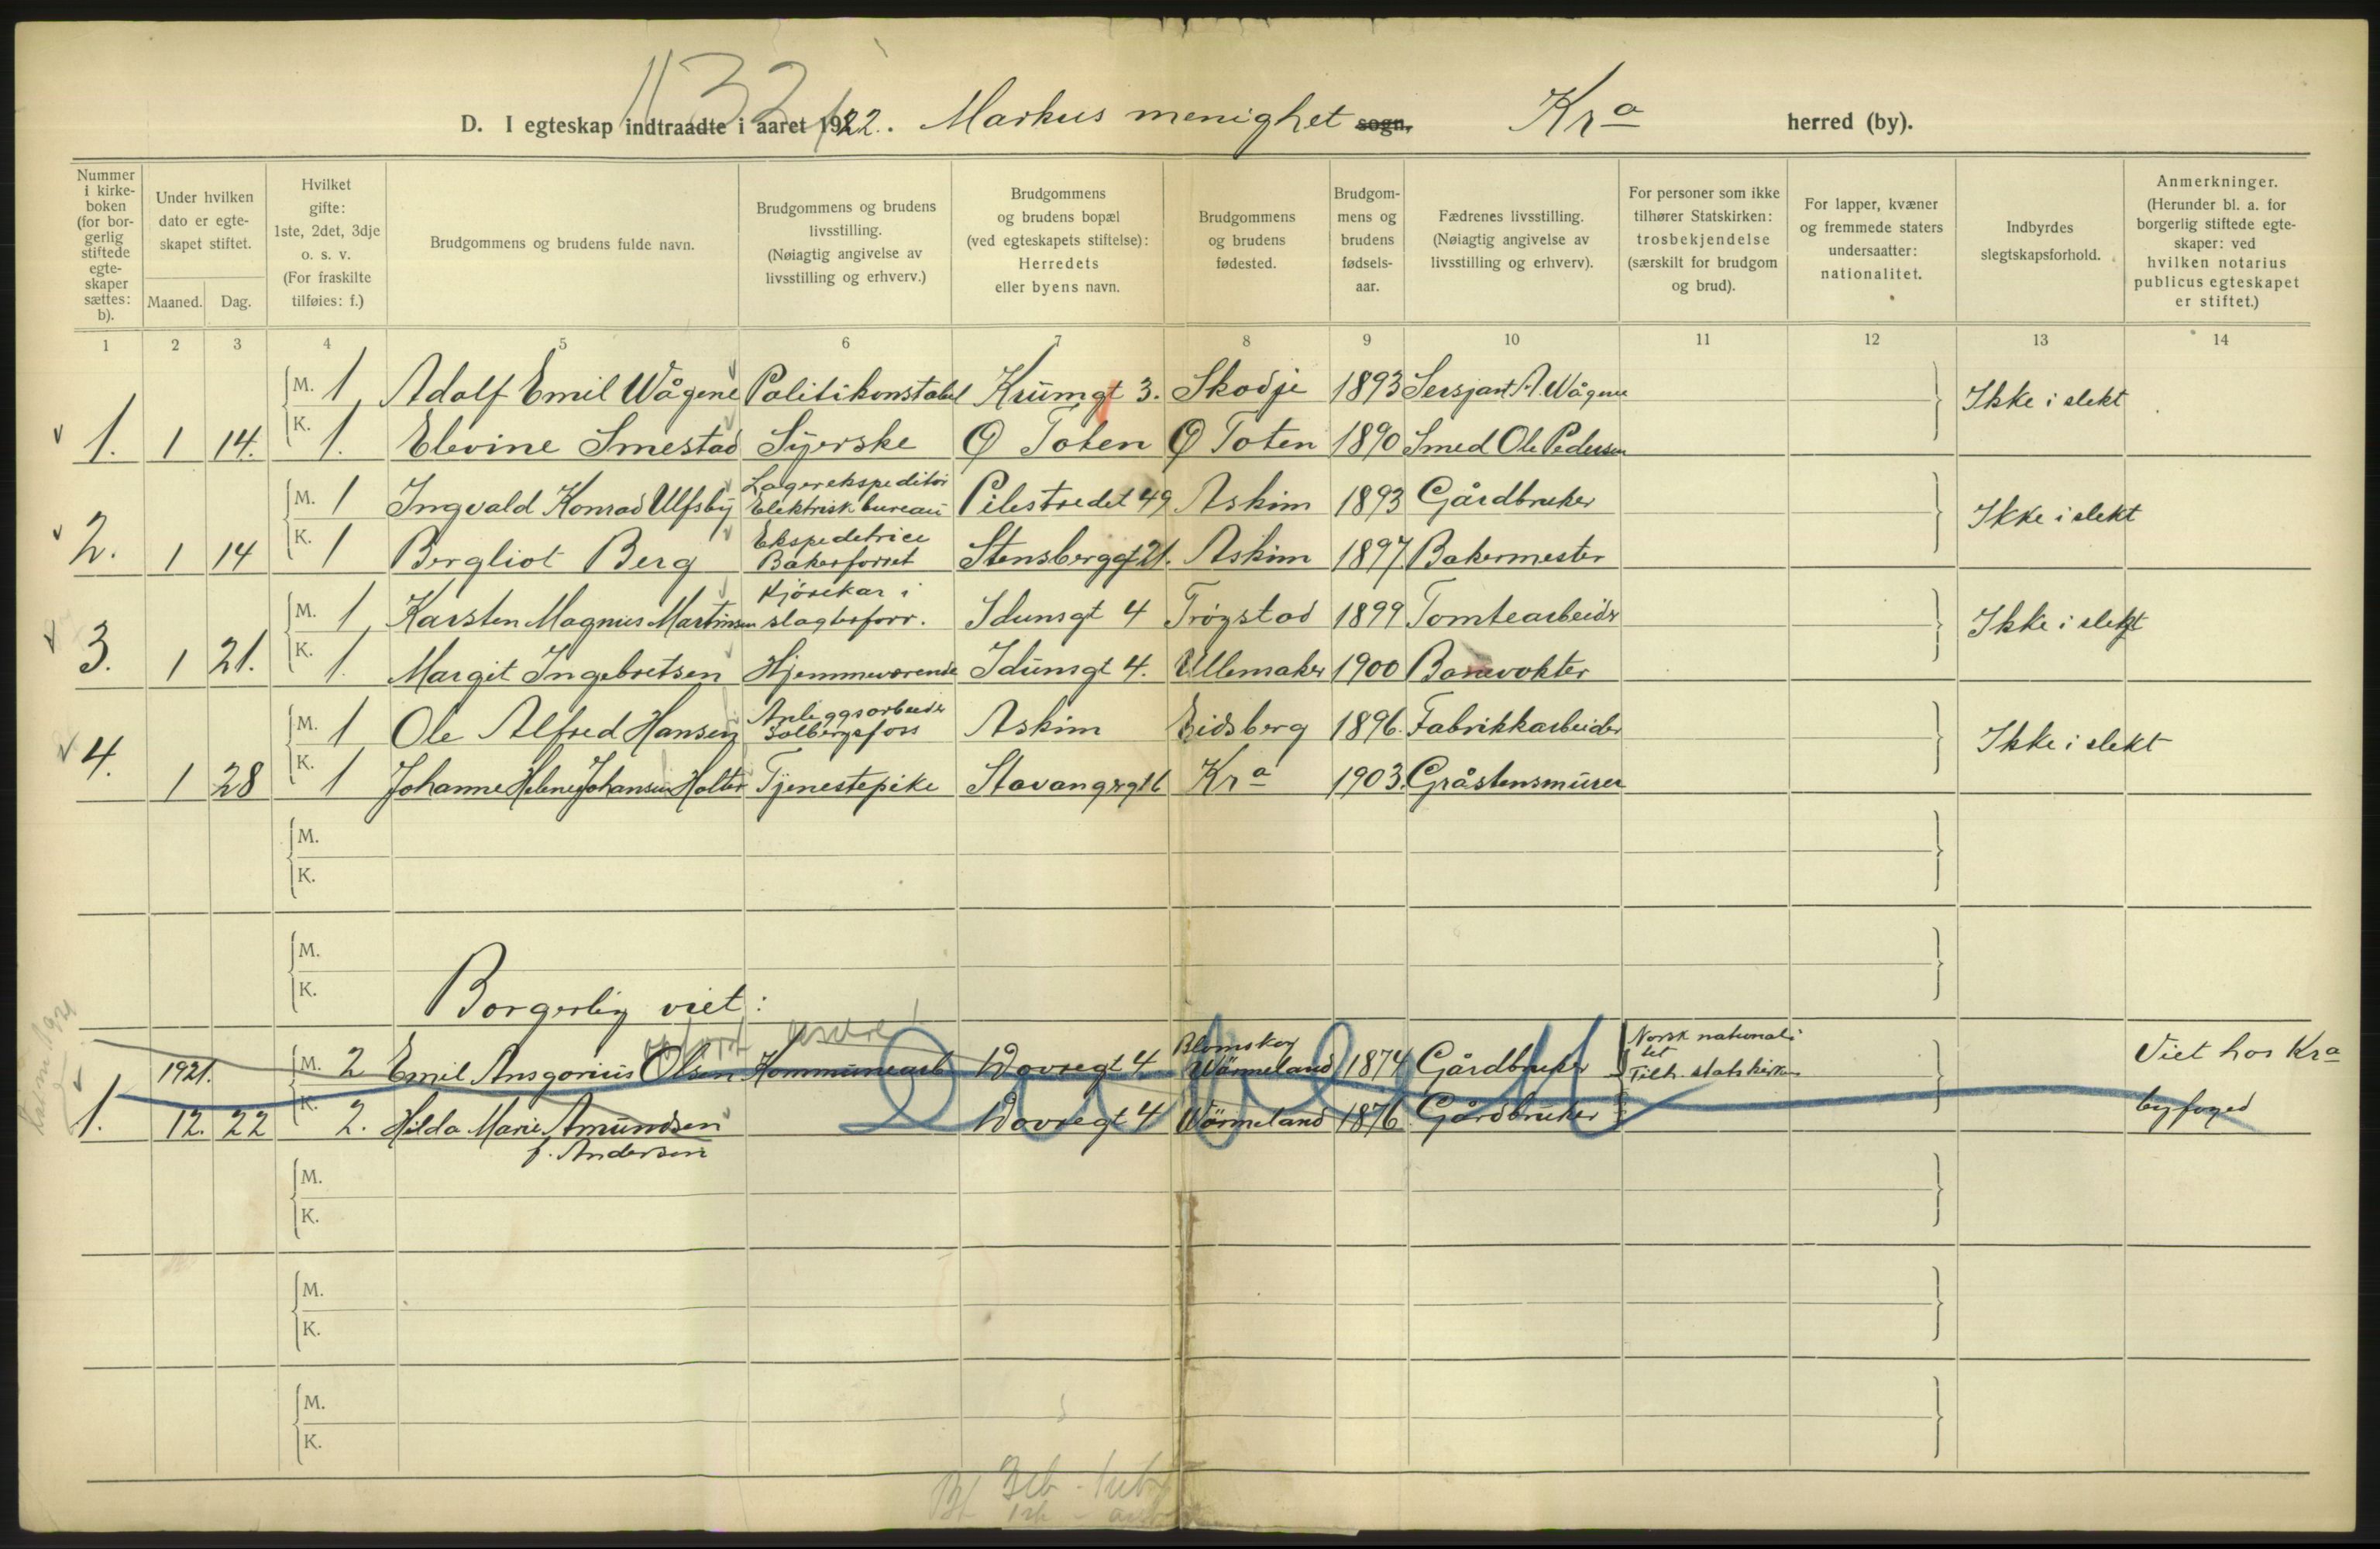 1132
D. I egteskap indtraadte i aaret 1922. Markus menighet sogn. Kra herred (by).
Nummer i kirke-boken (for bor-gerlig stiftede egte-skaper sættes: b).
Under hvilken dato er egte-skapet stiftet.
Maaned. Dag.
Hvilket gifte: 1ste, 2det, 3dje o. s. v. (For fraskilte tilføies: f.)
Brudgommens og brudens fulde navn.
Brudgommens og brudens livsstilling. (Nøiagtig angivelse av livsstilling og erhverv.)
Brudgommens og brudens bopæl (ved egteskapets stiftelse): Herredets eller byens navn.
Brudgommens og brudens fødested.
Brudgom-mens og brudens fødsels-aar.
Fædrenes livsstilling. (Nøiagtig angivelse av livsstilling og erhverv).
For personer som ikke tilhører Statskirken: trosbekjendelse (særskilt for brudgom og brud).
For lapper, kvæner og fremmede staters undersaatter: nationalitet.
Indbyrdes slegtskapsforhold.
Anmerkninger. (Herunder bl. a. for borgerlig stiftede egte-skaper: ved hvilken notarius publicus egteskapet er stiftet.)
1 2 3 4 5 6 7 8 9 10 11 12 13 14
M. 1 Adolf Emil Wågene Politikonstabel Krumgt 3. Skodje 1893 Sersjant A. Wågene Ikke i slekt
1. 1 14. K. 1. Elevine Smestad Syerske Ø Toten Ø Toten 1890 Smed Ole Pedersen
M. 1 Ingvald Konrad Ulfsby Lagerekspeditör Elektrisk bureau Pilestredet 49 Askim 1893 Gårdbruker Ikke i slekt
2. 1 14 K. 1 Bergliot Berg Ekspeditrice Bakerforret Stensberggt 21. Askim 1897 Bakermester
M. 1 Karsten Magnus Martinsen Kjörekar i slagterforr. Idunsgt 4 Trögstad 1899 Tomtearbeider Ikke i slekt
3. 1 21. K. 1. Margit Ingebretsen Hjemmeværende Idunsgt 4. Ullensaker 1900 Banevokter
M. 1 Ole Alfred Hansen Anleggsarbeider Solbergfoss Askim Eidsberg 1896. Fabrikkarbeider Ikke i slekt
4. 1 28 K. 1 Johanne Helene Johansen Holter Tjenestepike Stavangergt 6 Kra 1903. Gråstensmurer
M.
K.
M.
K.
Borgerlig viet:
1921. M. 2 Emil Ansgarius Olsen Kommunearb Dovregt 4. Blomskog Wärmeland 1874 Gårdbruker Norsk nationalitet Tilh. statskirken Viet hos Kra
1. 12. 22 K. 2. Hilda Marie Amundsen f. Andersen Dovregt 4 Wärmeland 1876 Gårdbruker byfoged
M.
K.
M.
K.
M.
K.